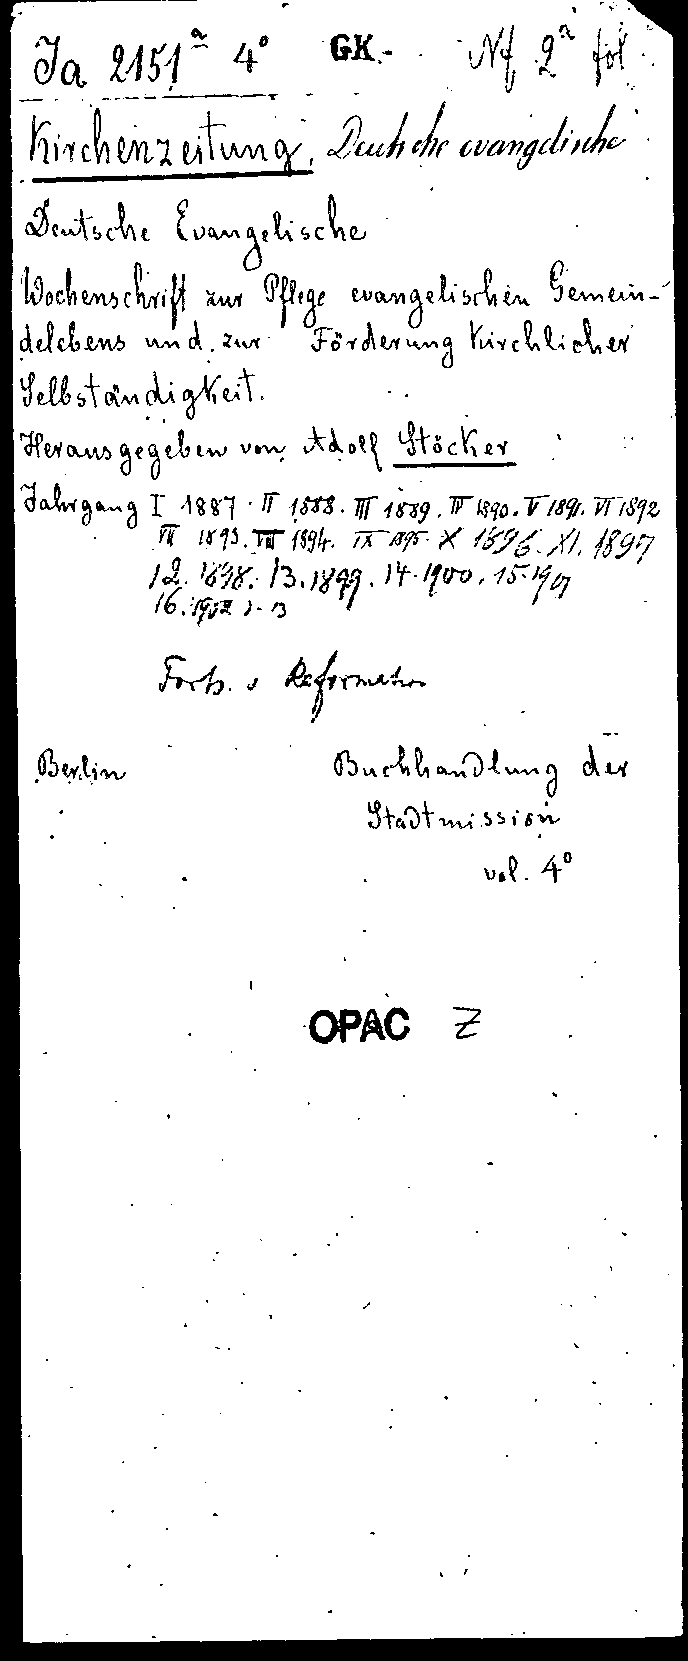 Ja 2151ª 4° GK. Nf 2ª fol
Kirchenzeitung, Deutsche evangelische
Deutsche Evangelische
Wochenschrift zur Pflege evangelischen Gemein-
delebens und zur Förderung Kirchlicher
Selbständigkeit.
Herausgegeben von Adolf Stöcker
Jahrgang I 1887. II 1888. III 1889. IV 1890. V 1891. VI 1892
VII 1893. VIII 1894. IX 1895. X 1896. XI. 1897
12. 1898. 13. 1899. 14. 1900. 15. 1901
16. 1902
Forts. s Reformation
Berlin Buchhandlung der
Stadtmission
vol. 4°
OPAC Z